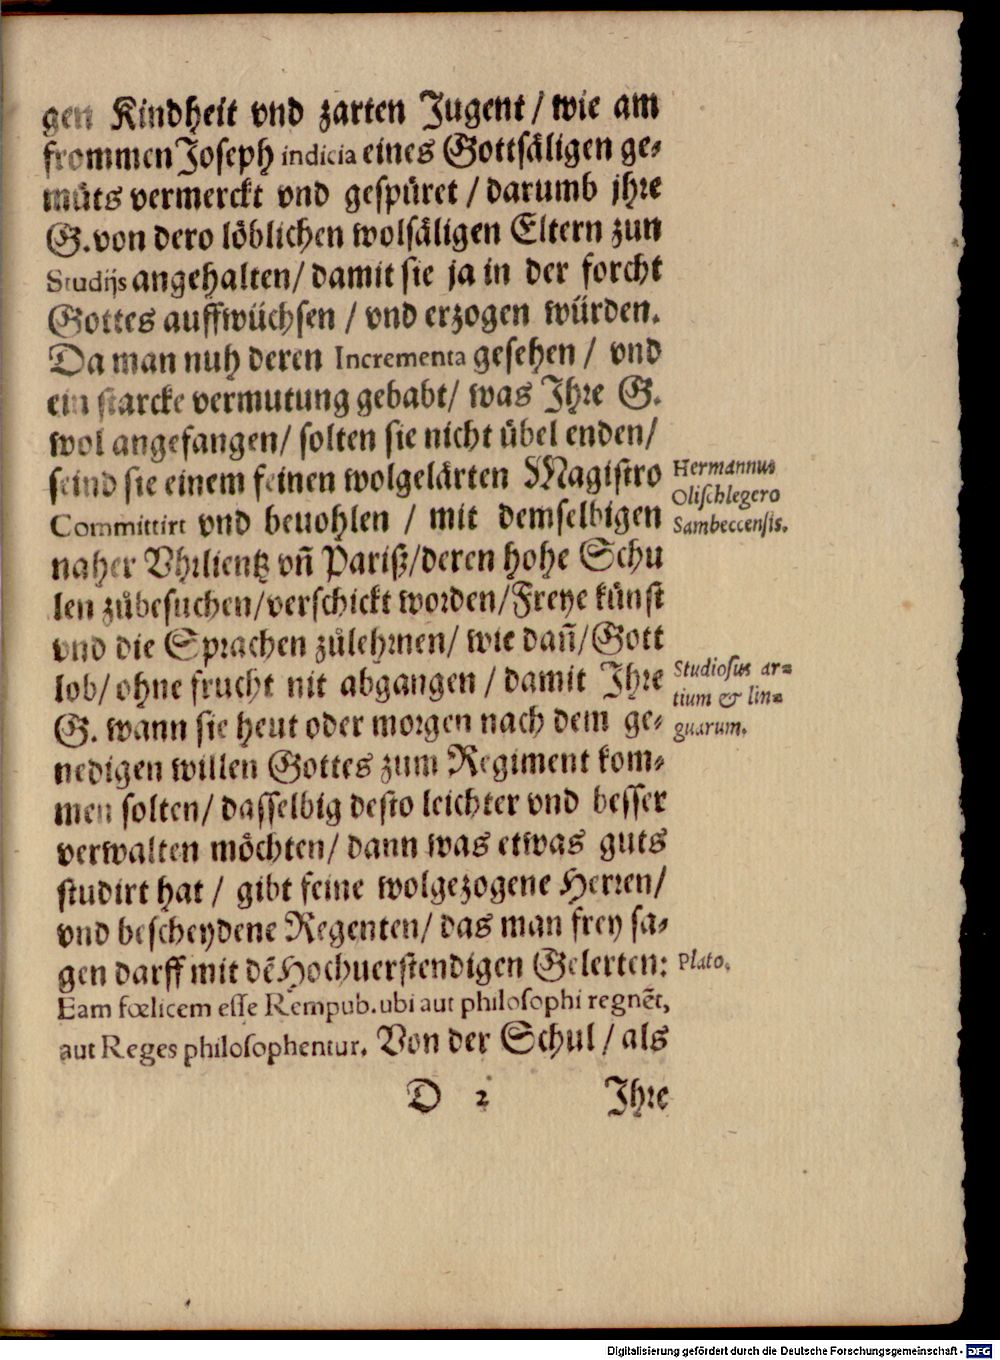 gen Kindheit vnd zarten Jugent / wie am
frommen Joseph indicia eines Gottsäligen ge-
müts vermerckt vnd gespüret / darumb jhre
G. von dero löblichen wolsäligen Eltern zun
Studijs angehalten / damit sie ja in der forcht
Gottes auffwüchsen / vnd erzogen würden.
Da man nuh deren Incrementa gesehen / vnd
ein starcke vermutung gehabt / was Ihre G.
wol angefangen / solten sie nicht übel enden /
seind sie einem feinen wolgelärten Magistro
Hermannus
Olischlegero
Sambeccensis.
Committirt vnd beuohlen / mit demselbigen
naher Vhrlientz vñ Pariß / deren hohe Schu
len zůbesuchen / verschickt worden / Freye künst
vnd die Sprachen zůlehrnen / wie dañ / Gott
lob / ohne frucht nit abgangen / damit Ihre
Studiosus ar=
tium & lin=
guarum.
G. wann sie heut oder morgen nach dem ge-
nedigen willen Gottes zum Regiment kom-
men solten / dasselbig desto leichter vnd besser
verwalten möchten / dann was etwas guts
studirt hat / gibt feine wolgezogene Herren /
vnd bescheydene Regenten / das man frey sa-
gen darff mit dẽ Hochuerstendigen Gelerten:
Plato.
Eam fœlicem esse Rempub. ubi aut philosophi regnẽt,
aut Reges philosophentur. Von der Schul / als
D 2 Ihre
Digitalisierung gefördert durch die Deutsche Forschungsgemeinschaft - DFG